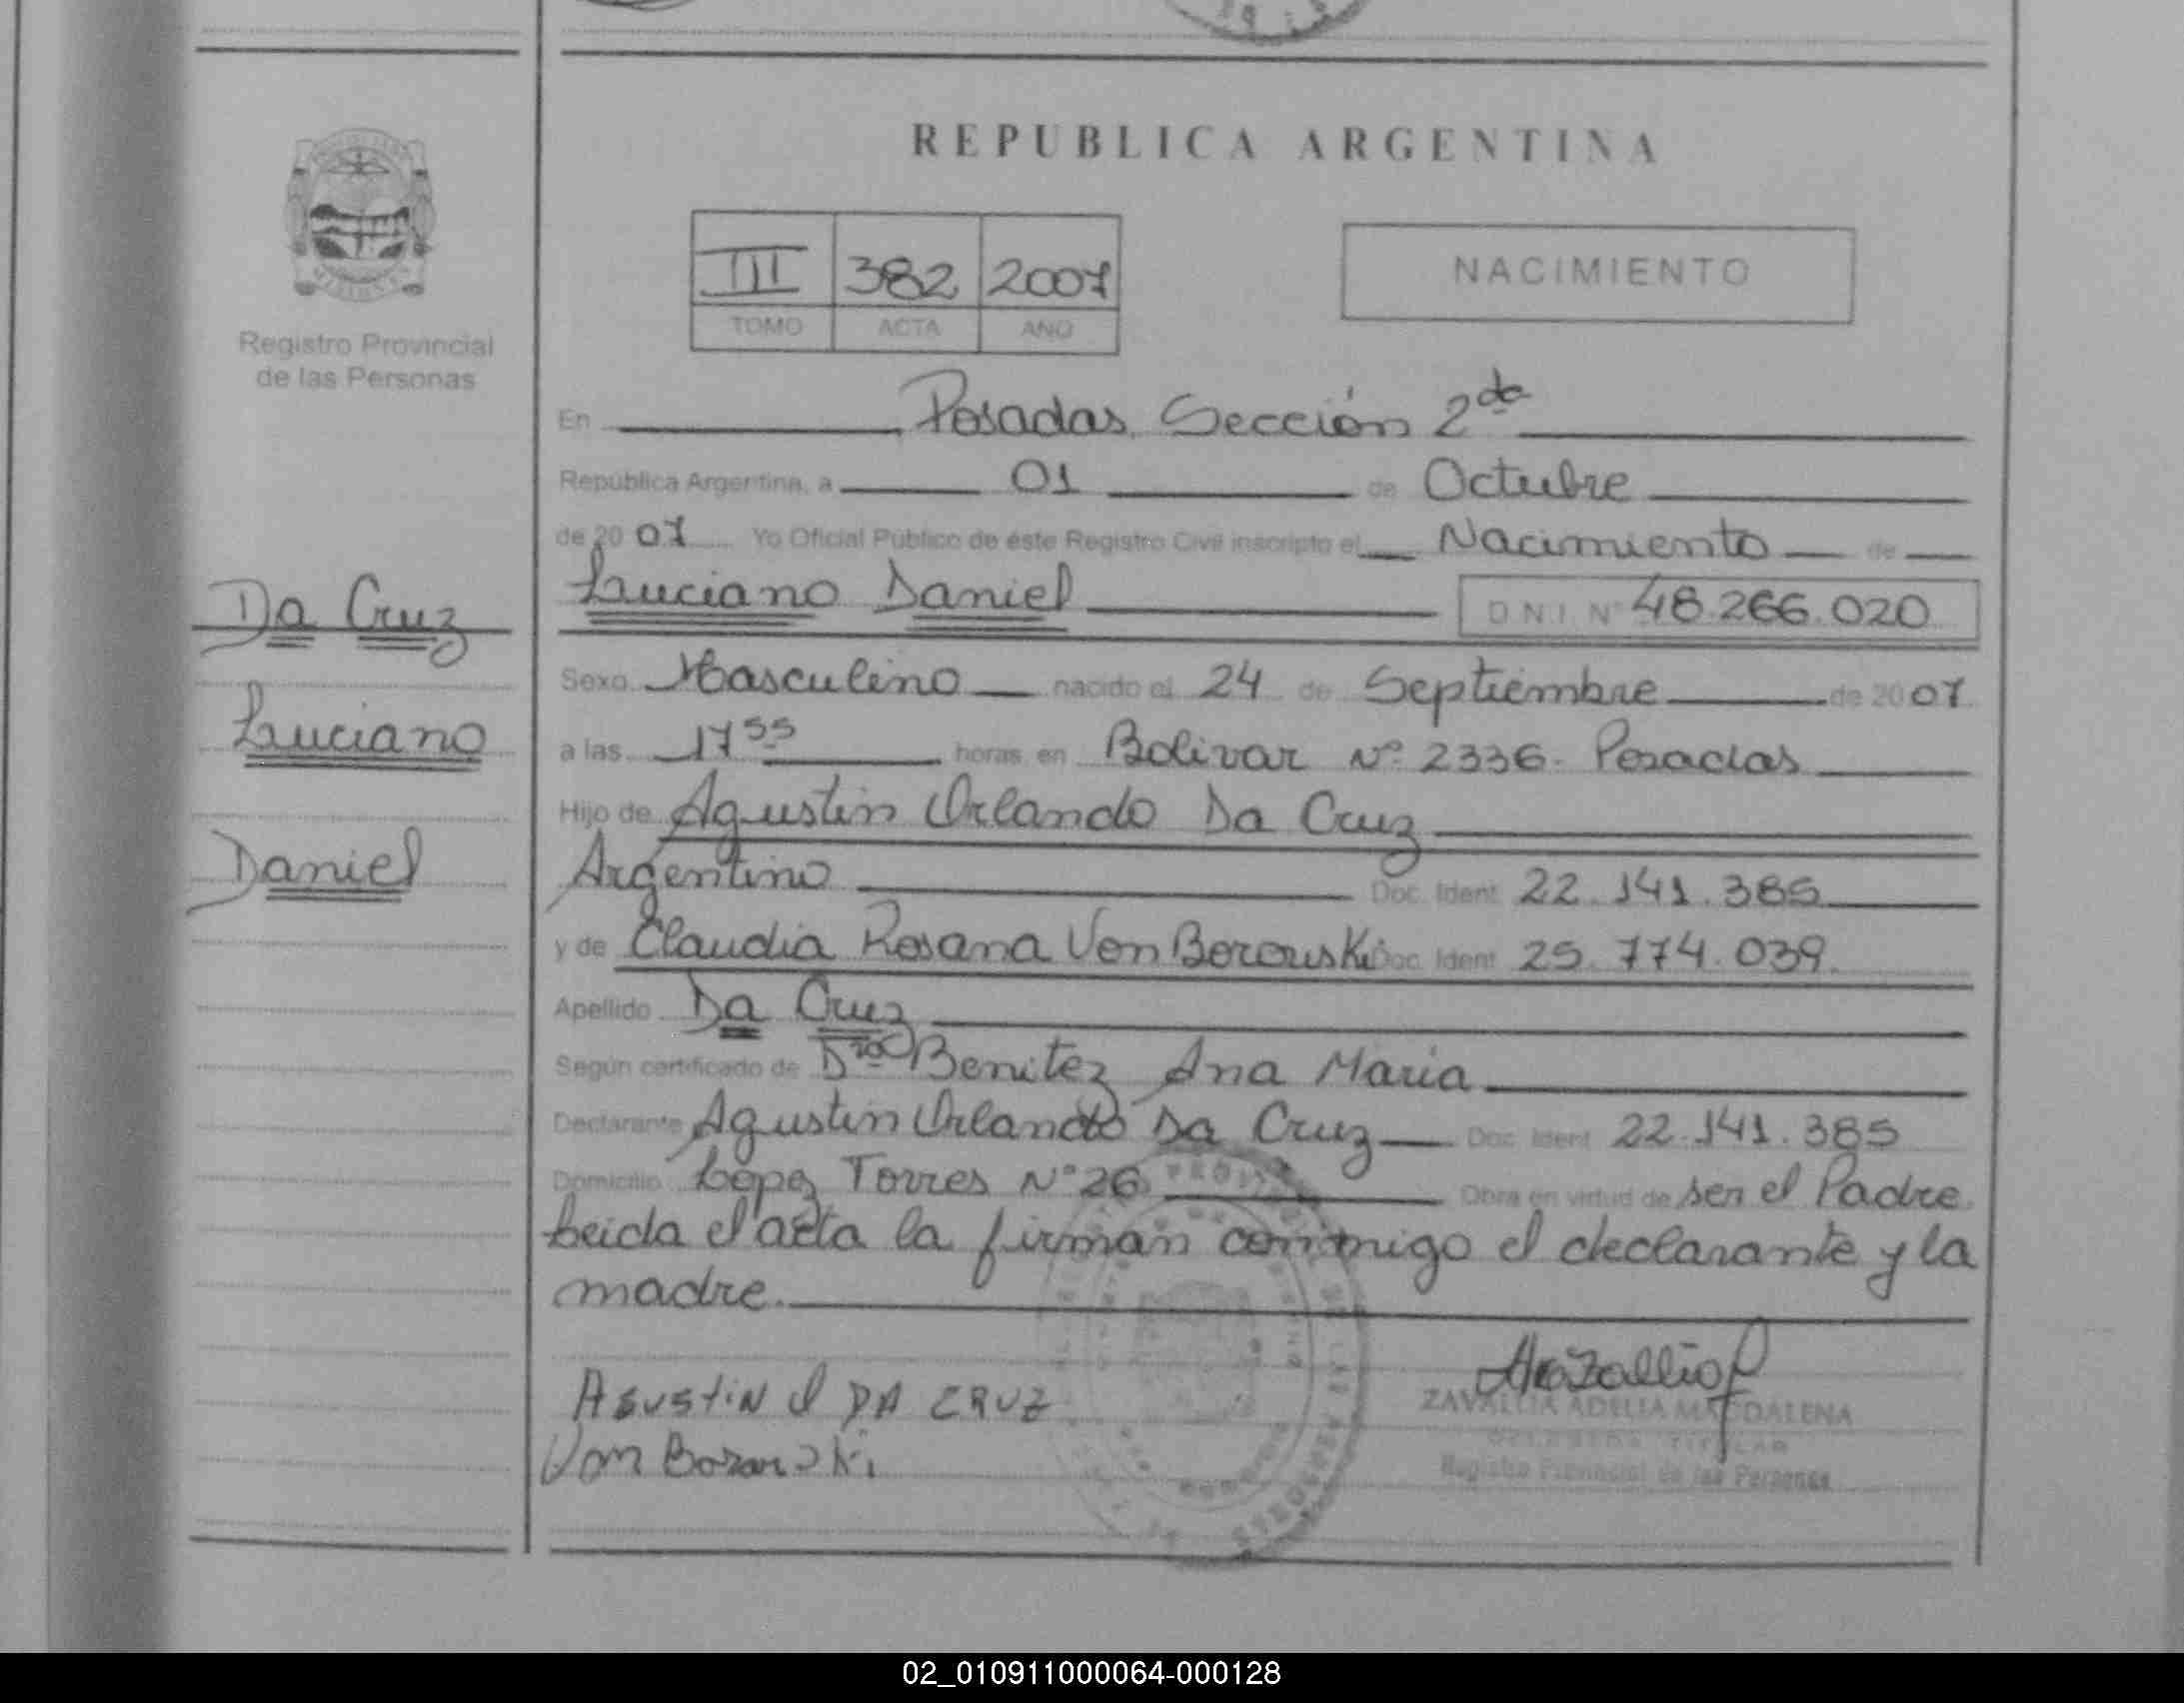 REPUBLICA ARGENTINA
III 382 2007
TOMO ACTA AÑO
NACIMIENTO
Registro Provincial
de las Personas
Da Cruz
Luciano
Daniel
En Posadas Sección 2da
República Argentina, a 01 de Octubre
de 2007 Yo Oficial Público de éste Registro Civil inscripto el Nacimiento de
Luciano Daniel D.N.I. Nº 48.266.020
Sexo Masculino nacido el 24 de Septiembre de 2007
a las 17 55 horas en Bolivar Nº 2336. Posadas
Hijo de Agustin Orlando Da Cruz
Argentino Doc. Ident 22.141.385
y de Claudia Rosana Von Borowski Doc. Ident 25.774.039.
Apellido Da Cruz
Según certificado de Dra Benitez Ana Maria
Declarante Agustin Orlando Da Cruz Doc. Ident 22.141.385
Domicilio López Torres Nº 26 Obra en virtud de ser el Padre
Leida el acta la firman conmigo el declarante y la
madre.
AGUSTIN O DA CRUZ
Von Borowski
ZAVALLIA ADELIA MAGDALENA
DELEGADA TITULAR
Registro Provincial de las Personas
02_010911000064-000128